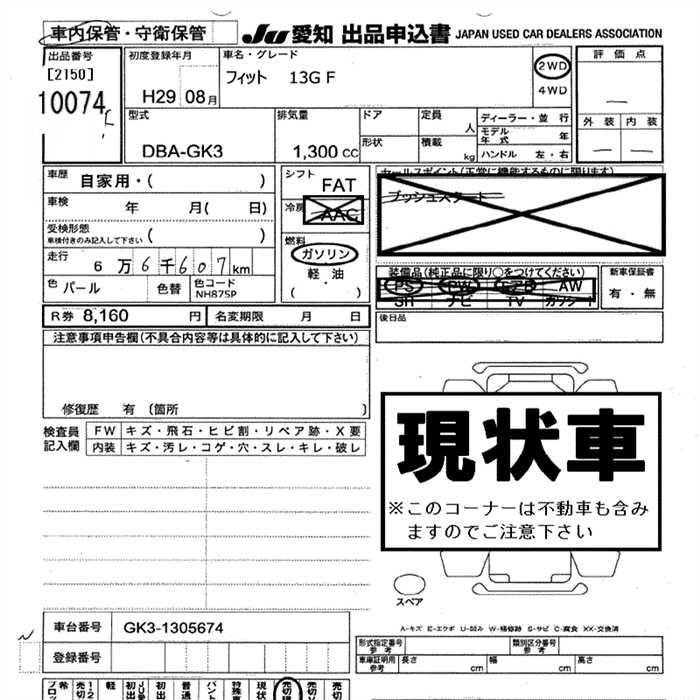 車内保管・守衛保管
JU 愛知 出品申込書 JAPAN USED CAR DEALERS ASSOCIATION
出品番号
[2150]
10074
初度登録年月
H29 08月
車名・グレード
フィット 13G F
2WD
4WD
評価点
外装 内装
型式
DBA-GK3
排気量
1,300 cc
ドア
形状
定員
人
積載
kg
ディーラー・並行
モデル年式 年
ハンドル 左・右
車歴
自家用・( )
車検 年 月( 日)
受検形態
車検付きのみ記入して下さい ( )
走行
6万6千607km
色 パール 色替 色コード
NH875P
シフト
FAT
冷房
AAC
燃料
ガソリン
軽・油
( )
セールスポイント(正常に機能するものに限ります)
プッシュスタート
装備品(純正品に限り○をつけてください)
PS PW エアB AW
SR ナビ TV カワシート
新車保証書
有・無
後日品
R券 8,160 円
名変期限 月 日
注意事項申告欄(不具合内容等は具体的に記入して下さい)
修復歴 有 (箇所 )
検査員
記入欄
FW キズ・飛石・ヒビ割・リペア跡・X要
内装 キズ・汚レ・コゲ・穴・スレ・キレ・破レ
現状車
※このコーナーは不動車も含み
ますのでご注意下さい
スペア
A-キズ E-エクボ U-凹み W-補修跡 S-サビ C-腐食 XX-交換済
車台番号 GK3-1305674
登録番号
型式指定番号
参考
類別区分番号
参考
車庫証明用
参考
長さ cm 幅 cm 高さ cm